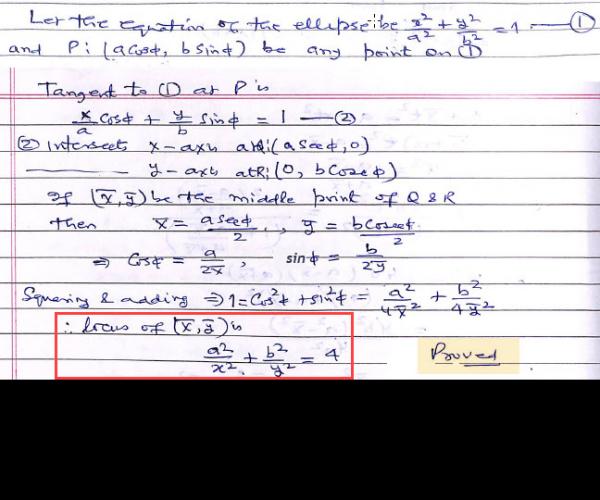 Let the equation of the ellipse be x²/a² + y²/b² = 1 —— ①
and P: (a cosϕ, b sinϕ) be any point on ①
Tangent to ① at P is
x/a cosϕ + y/b sinϕ = 1 —— ②
② Intersects x-axis at Q: (a secϕ, 0)
———— y-axis at R: (0, b cosecϕ)
If (x̄, ȳ) be the middle point of Q & R
then x̄ = a secϕ/2, ȳ = b cosecϕ/2
⇒ cosϕ = a/2x̄, sinϕ = b/2ȳ
Squaring & adding ⇒ 1 = cos²ϕ + sin²ϕ = a²/4x̄² + b²/4ȳ²
∴ locus of (x̄, ȳ) is
a²/x² + b²/y² = 4 Proved